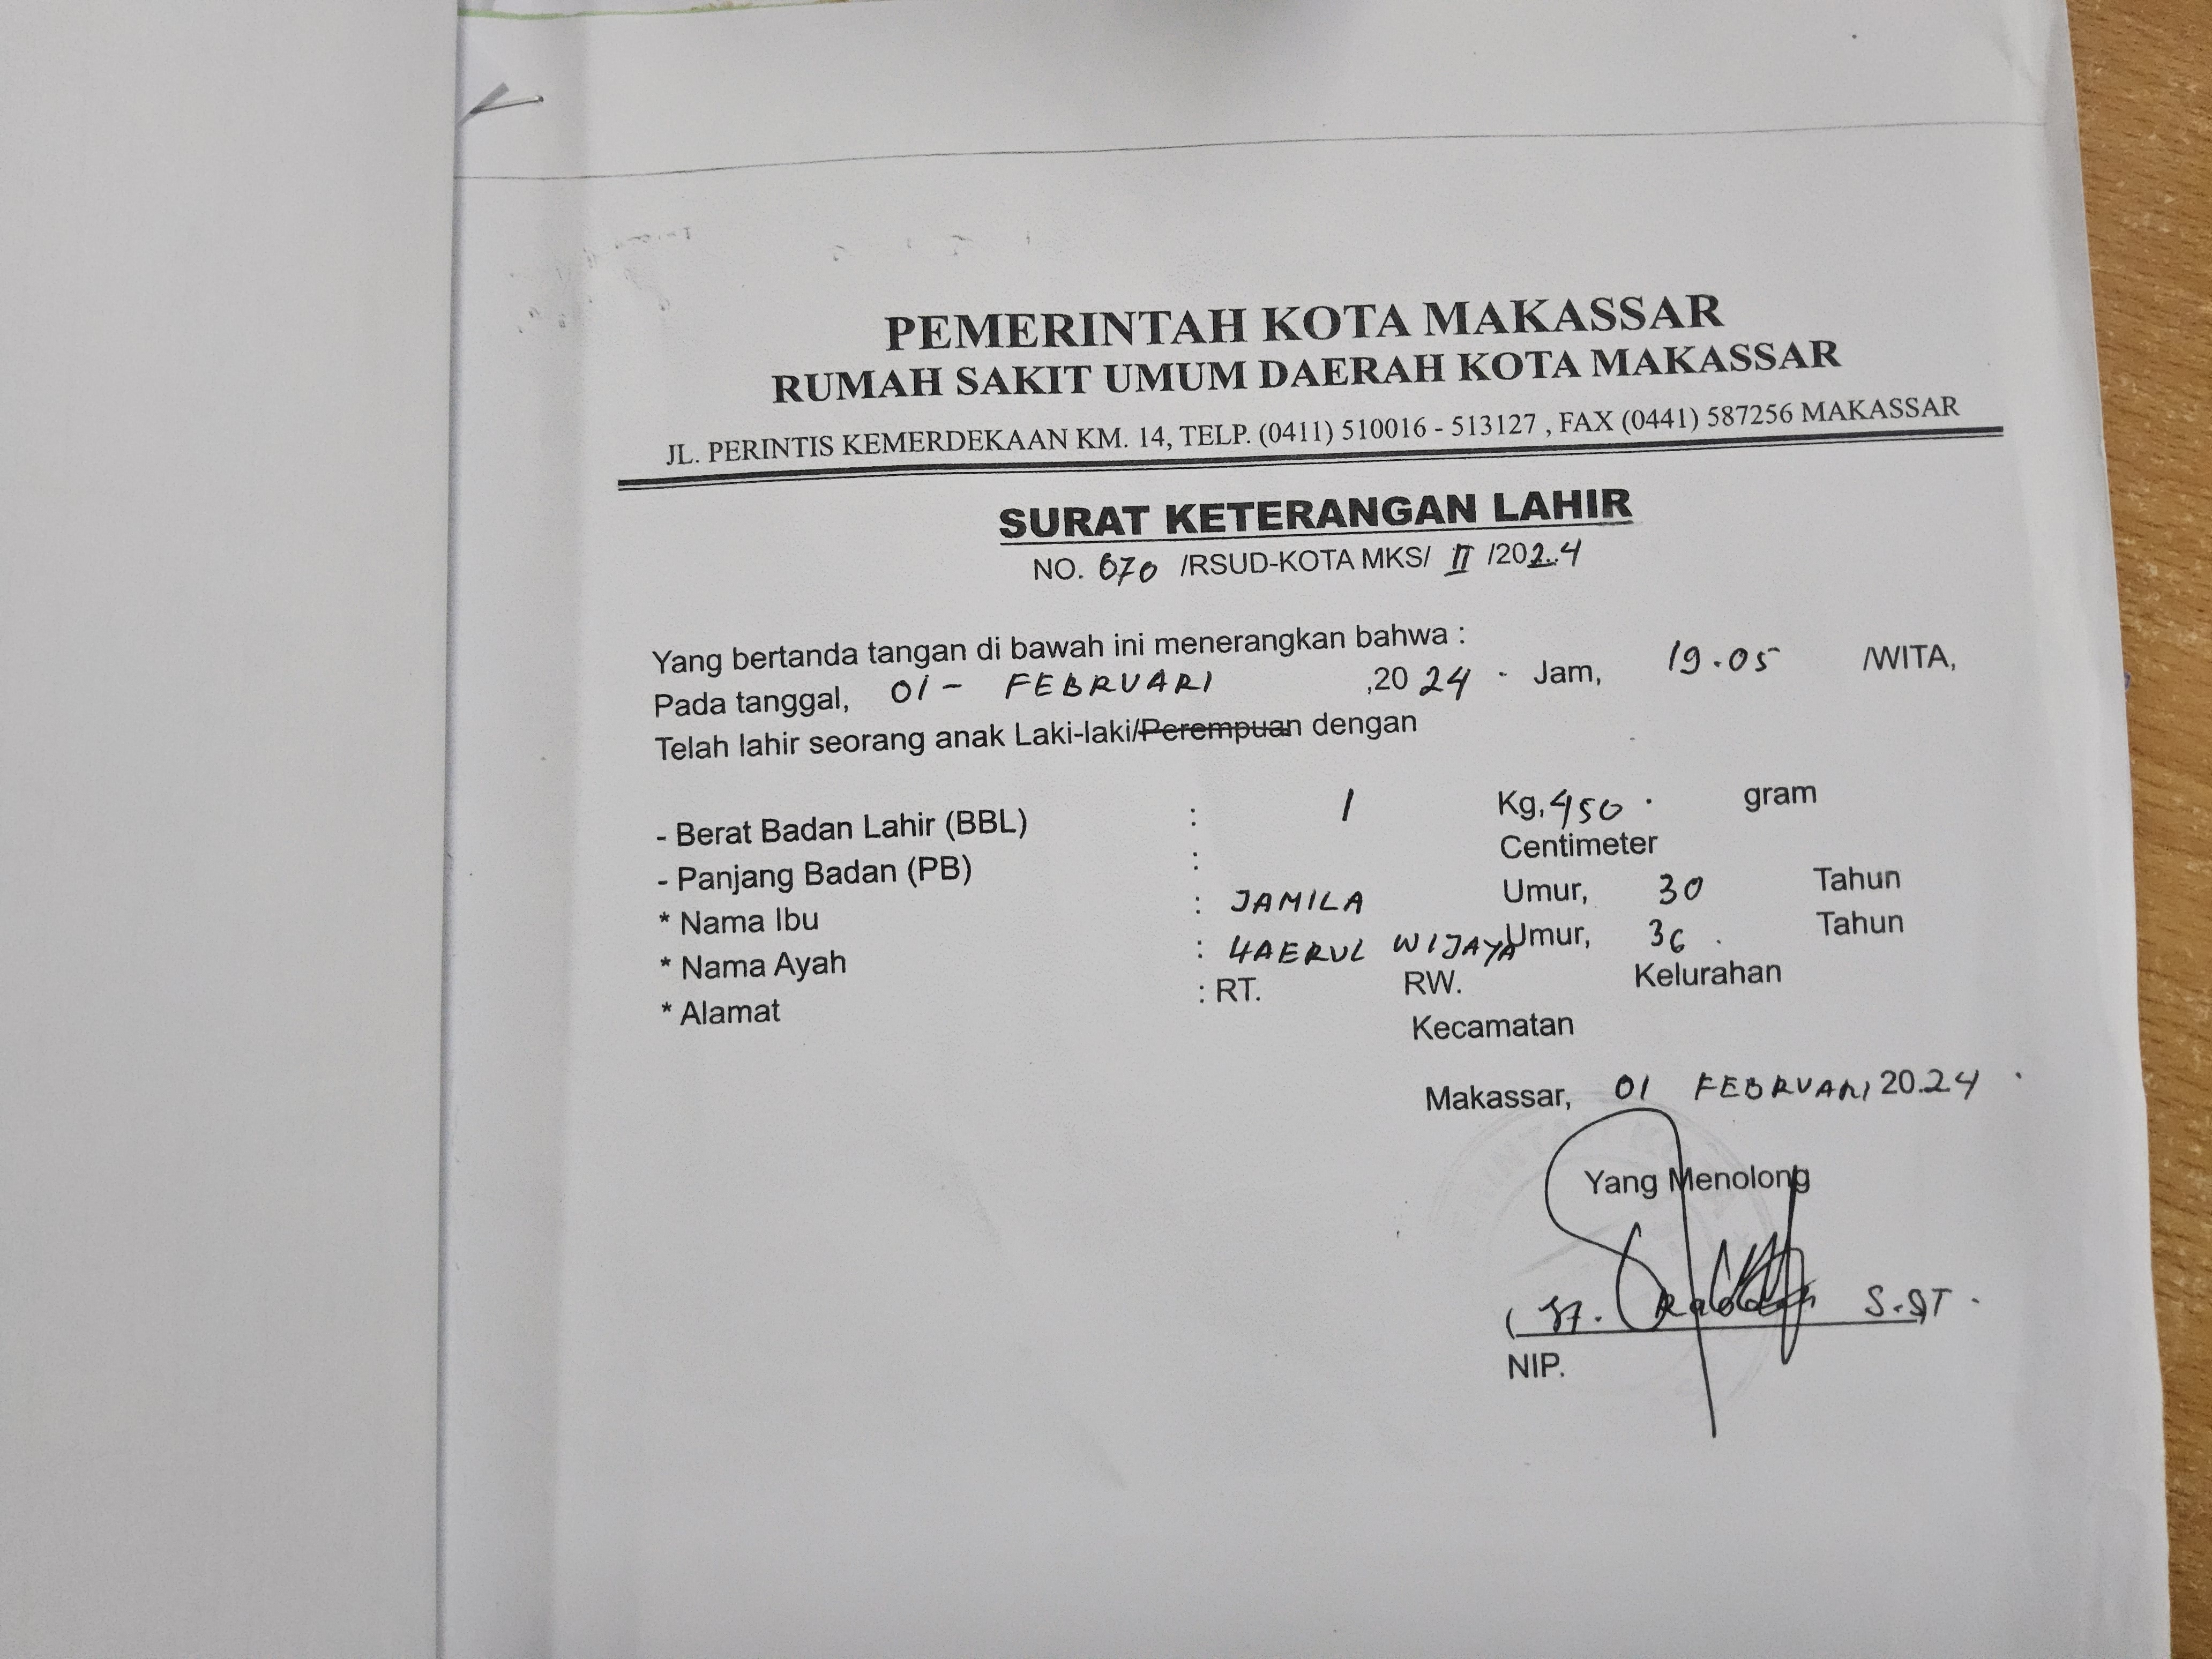 PEMERINTAH KOTA MAKASSAR
RUMAH SAKIT UMUM DAERAH KOTA MAKASSAR
JL. PERINTIS KEMERDEKAAN KM. 14, TELP. (0411) 510016 - 513127 , FAX (0441) 587256 MAKASSAR
SURAT KETERANGAN LAHIR
NO. 070 /RSUD-KOTA MKS/ II /2024
Yang bertanda tangan di bawah ini menerangkan bahwa :
Pada tanggal, 01 - FEBRUARI ,20 24 . Jam, 19.05 /WITA,
Telah lahir seorang anak Laki-laki/Perempuan dengan
- Berat Badan Lahir (BBL) : 1 Kg, 450 . gram
- Panjang Badan (PB) : Centimeter
* Nama Ibu : JAMILA Umur, 30 Tahun
* Nama Ayah : HAERUL WIJAYA Umur, 36 . Tahun
* Alamat : RT. RW. Kelurahan
Kecamatan
Makassar, 01 FEBRUARI 20.24
Yang Menolong
( St. S.ST .
NIP.